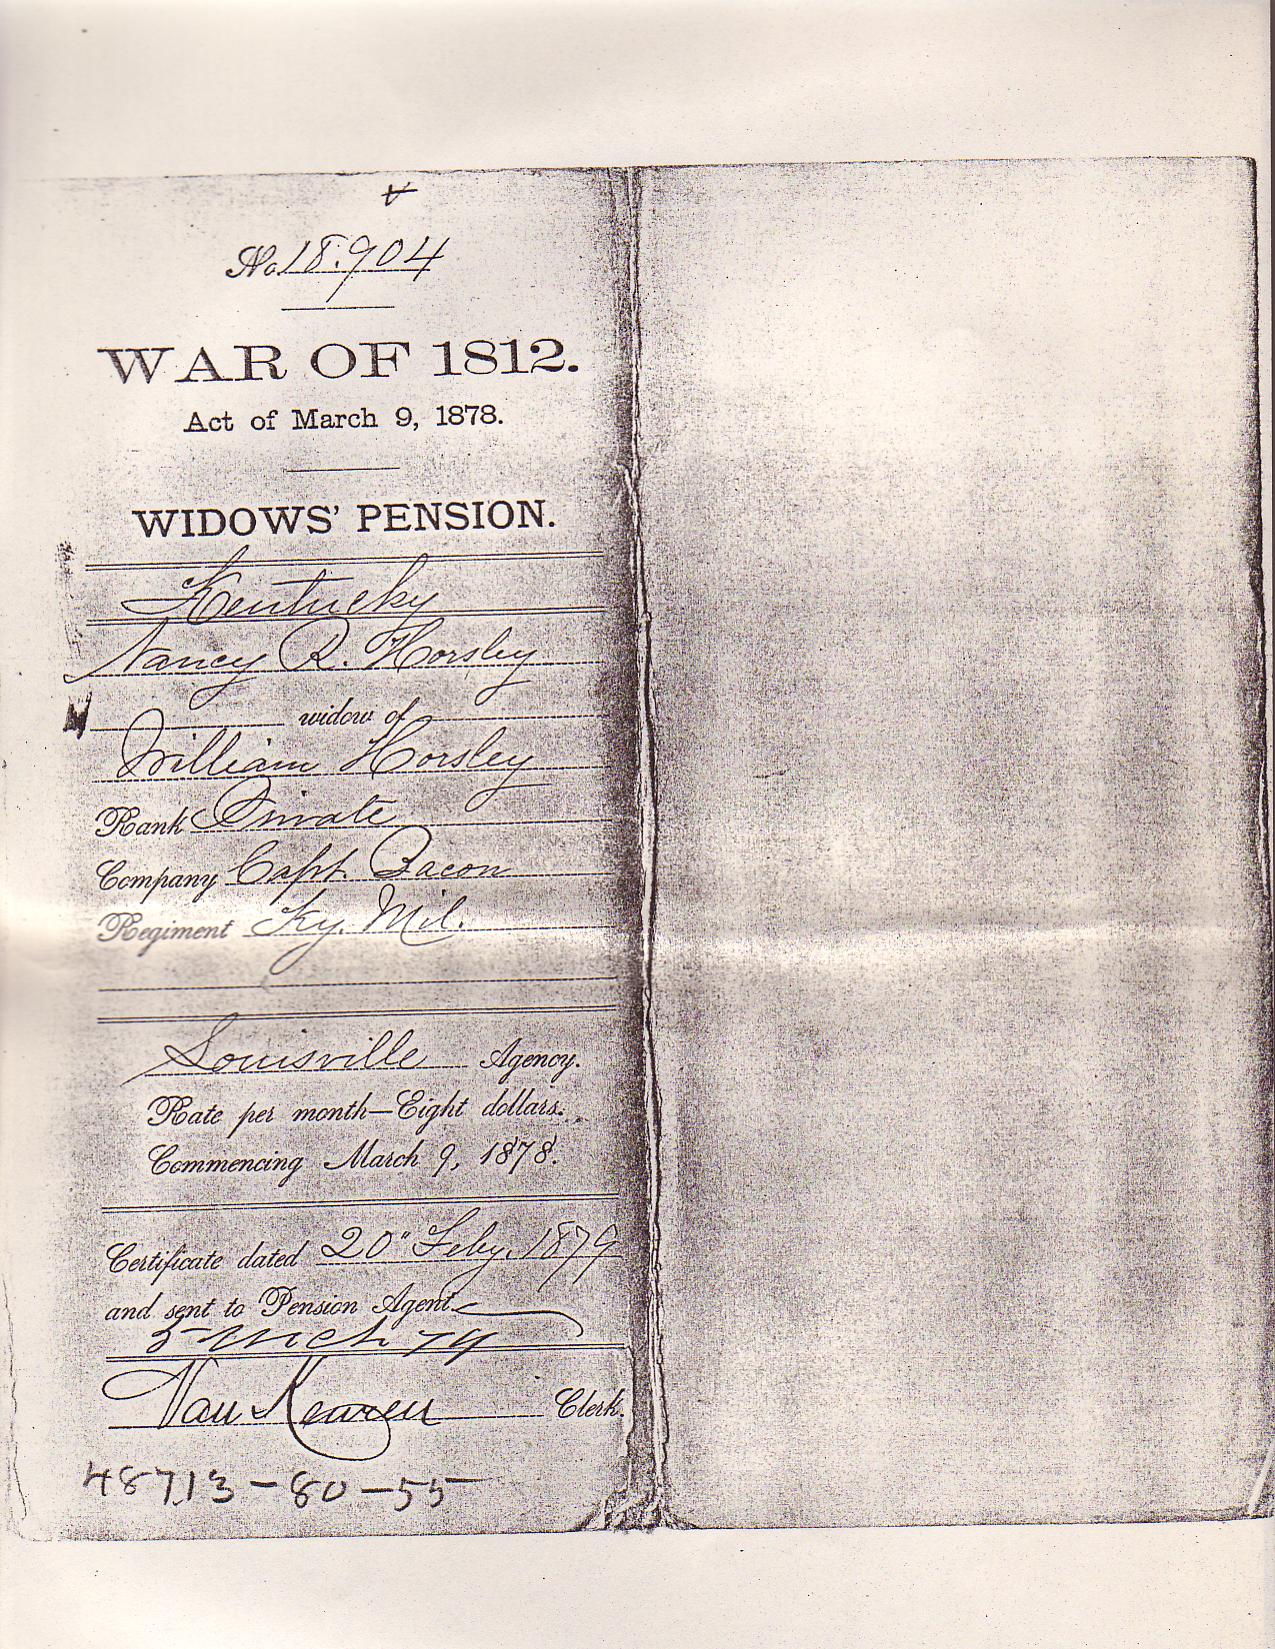 No. 18.904
WAR OF 1812.
Act of March 9, 1878.
WIDOWS' PENSION.
Kentucky
Nancy R. Horsley
widow of
William Horsley
Rank Private
Company Capt. Bacon
Regiment Ky. Mil.
Louisville Agency.
Rate per month—Eight dollars.
Commencing March 9, 1878.
Certificate dated 20" Feby. 1879
and sent to Pension Agent
5 Mch 79
Van Keuren Clerk.
48713-80-55